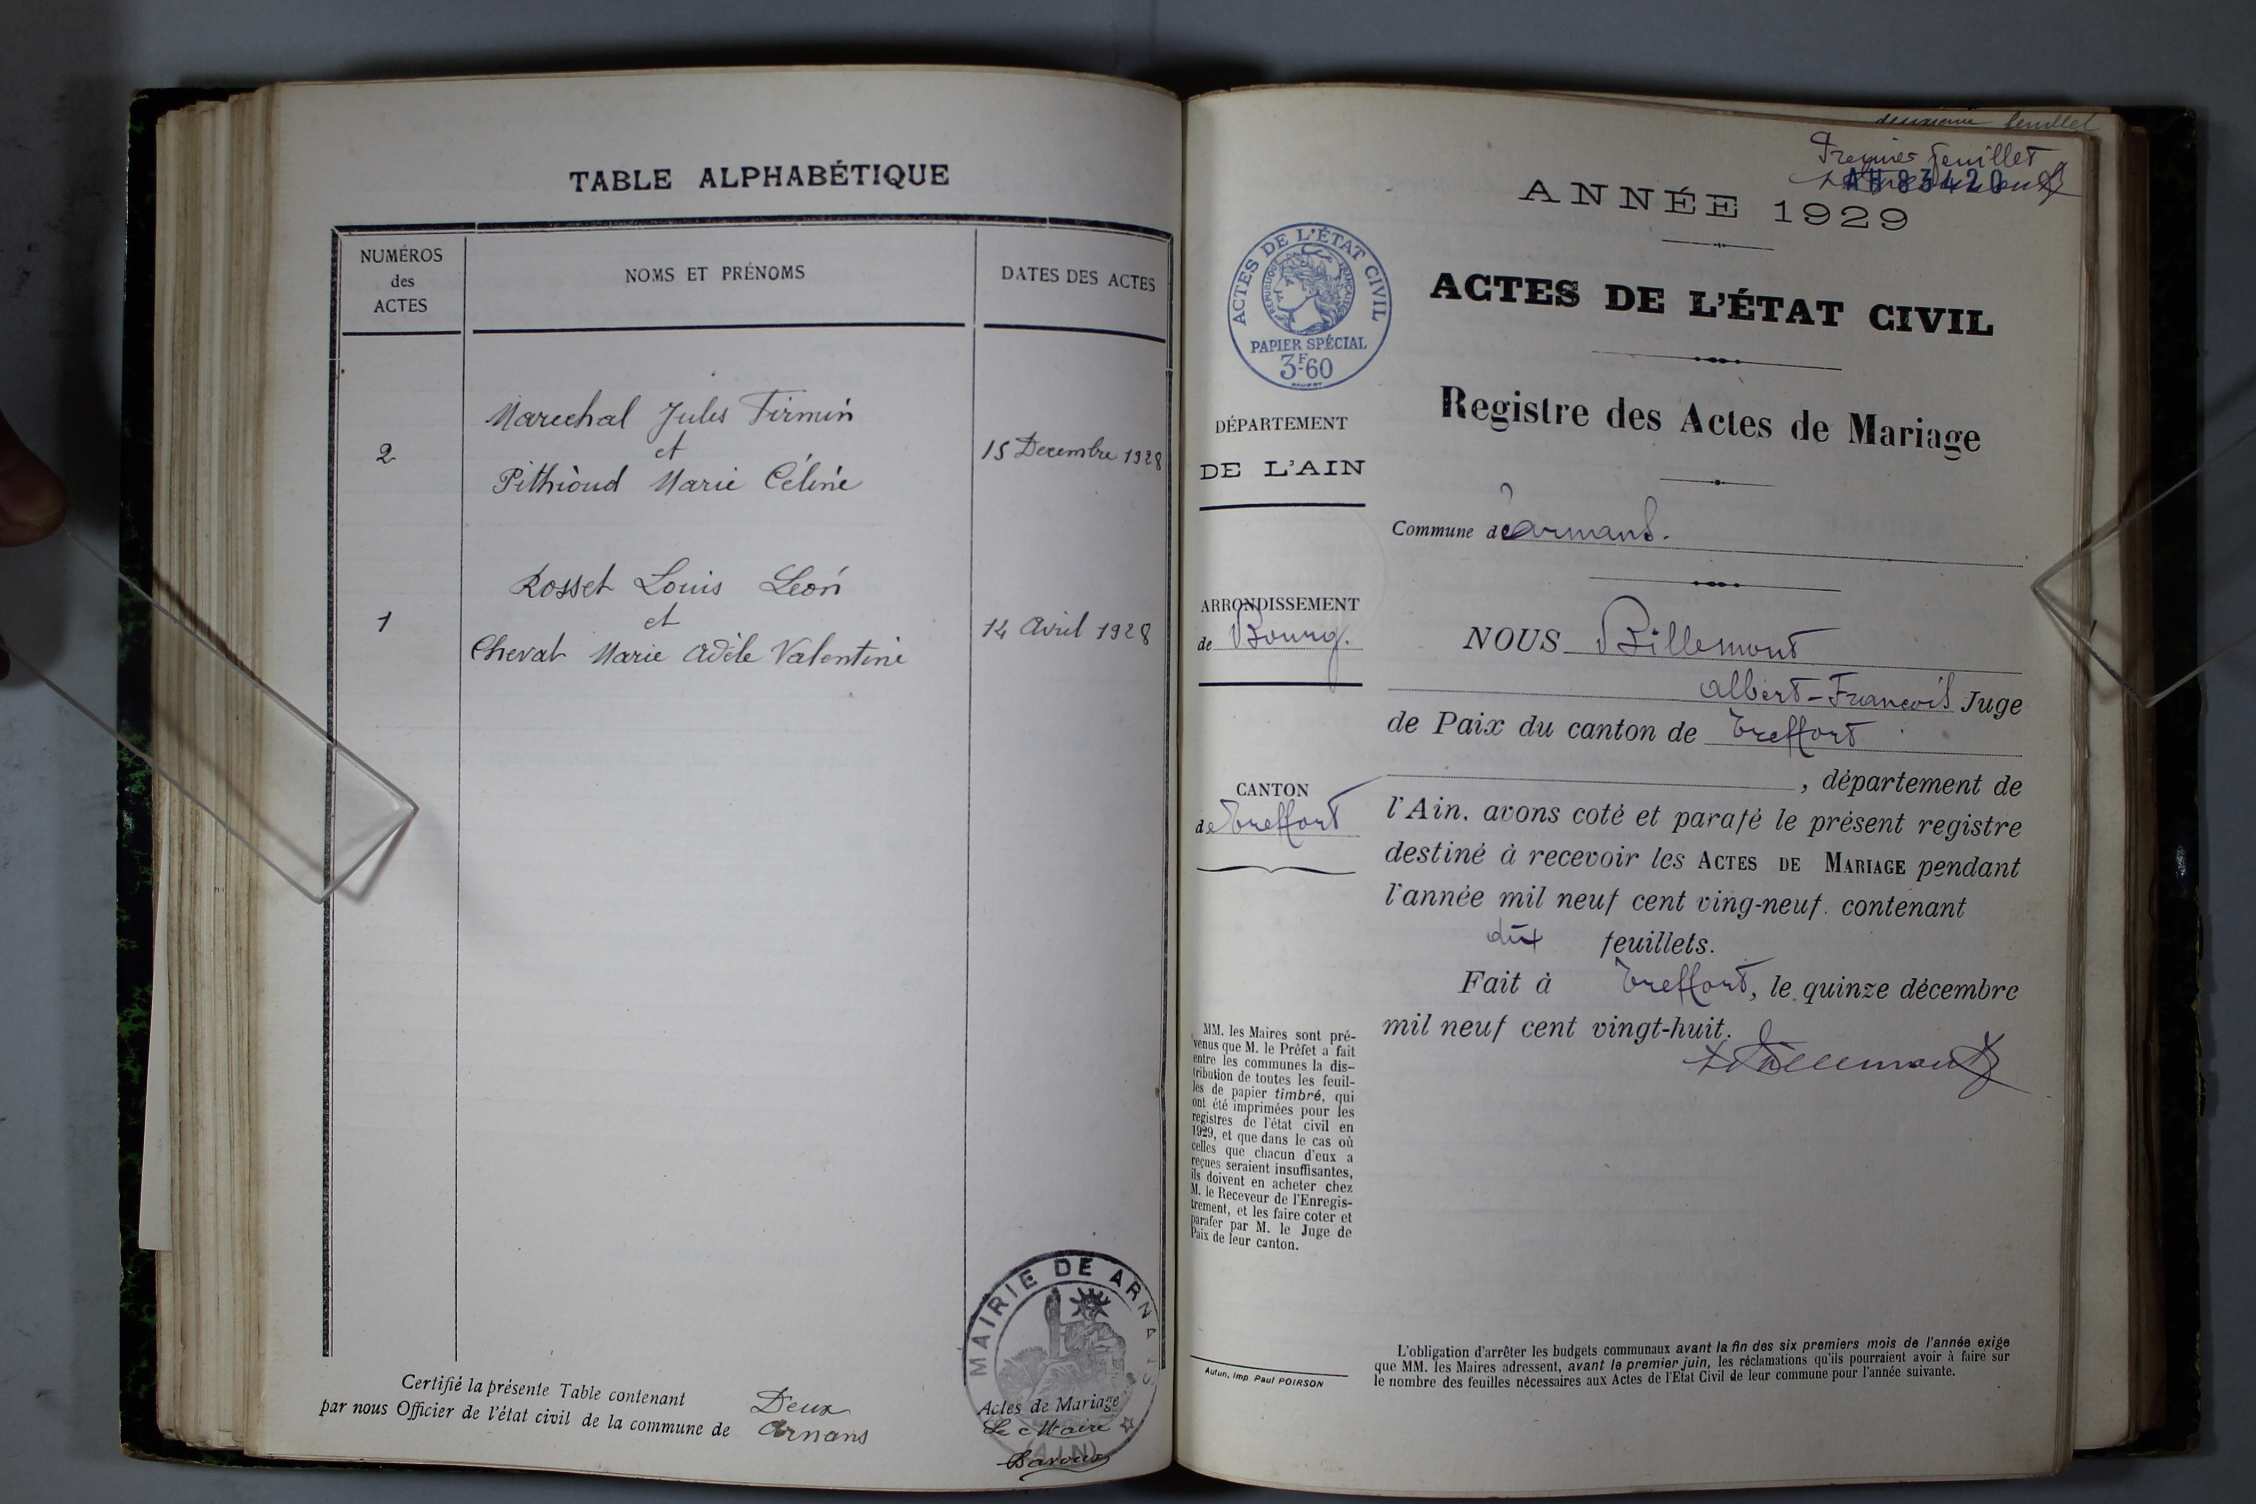 TABLE ALPHABÉTIQUE
NUMÉROS
des
ACTES
NOMS ET PRÉNOMS
DATES DES ACTES
2
Marechal Jules Firmin
et
Pithioud Marie Céline
15 Decembre 1928
1
Rosset Louis Leon
et
Chevat Marie Adèle Valentine
14 Avril 1928
Certifié la présente Table contenant Deux Actes de Mariage
par nous Officier de l'état civil de la commune de Arnans Le Maire
MAIRIE DE ARNANS
(AIN)
deuxieme feuillet
Premier feuillet
AH83420
ANNÉE 1929
ACTES DE L'ÉTAT CIVIL
RÉPUBLIQUE FRANÇAISE
PAPIER SPÉCIAL
3F.60
ACTES DE L'ÉTAT CIVIL
Registre des Actes de Mariage
DÉPARTEMENT
DE L'AIN
Commune de Arnans.
ARRONDISSEMENT
de Bourg.
CANTON
de Treffort
NOUS Billemont
Albert-François Juge
de Paix du canton de Treffort
, département de
l'Ain, avons coté et parafé le présent registre
destiné à recevoir les ACTES DE MARIAGE pendant
l'année mil neuf cent ving-neuf. contenant
dix feuillets.
Fait à Treffort, le quinze décembre
mil neuf cent vingt-huit.
ABillemont
MM. les Maires sont pré-
venus que M. le Préfet a fait
entre les communes la dis-
tribution de toutes les feuil-
les de papier timbré, qui
ont été imprimées pour les
registres de l'état civil en
1929, et que dans le cas où
celles que chacun d'eux a
reçues seraient insuffisantes,
ils doivent en acheter chez
M. le Receveur de l'Enregis-
trement, et les faire coter et
parafer par M. le Juge de
Paix de leur canton.
Autun, imp. Paul POIRSON
L'obligation d'arrêter les budgets communaux avant la fin des six premiers mois de l'année exige
que MM. les Maires adressent, avant le premier juin, les réclamations qu'ils pourraient avoir à faire sur
le nombre des feuilles nécessaires aux Actes de l'Etat Civil de leur commune pour l'année suivante.